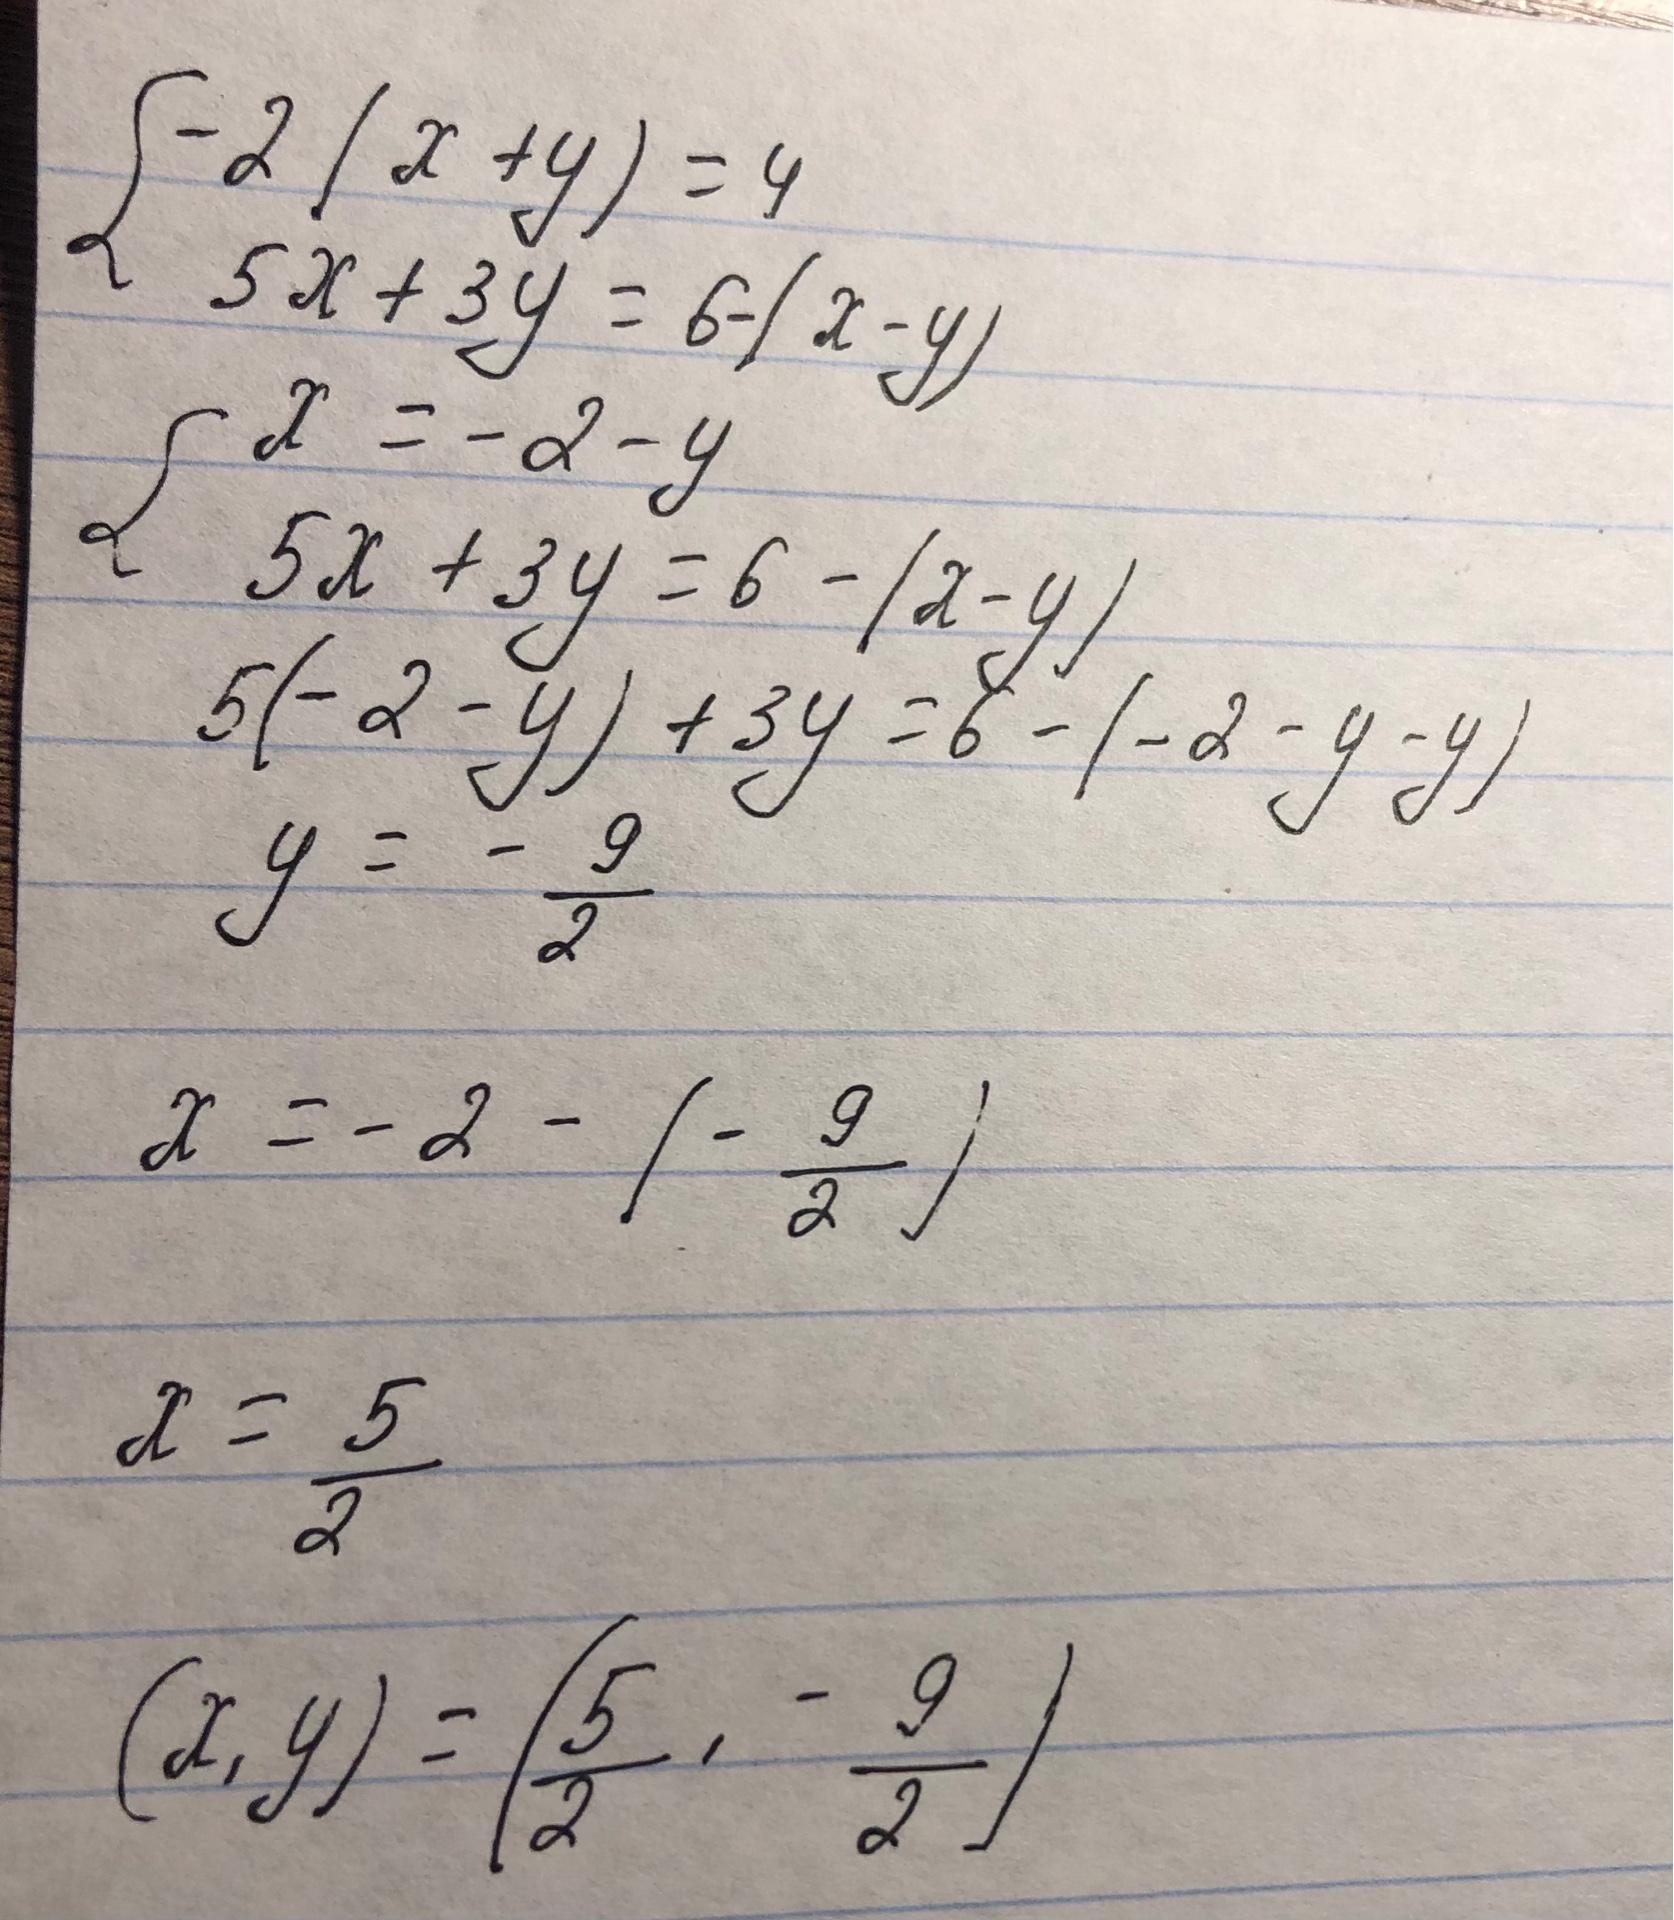 { -2(x+y)=4
5x+3y=6-(x-y)
{ x=-2-y
5x+3y=6-(x-y)
5(-2-y)+3y=6-(-2-y-y)
y=-9/2
x=-2-(-9/2)
x=5/2
(x,y)=(5/2,-9/2)